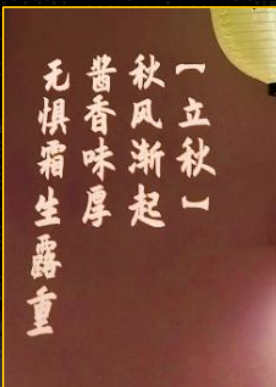 【立秋】
秋风渐起
酱香味厚
无惧霜生露重